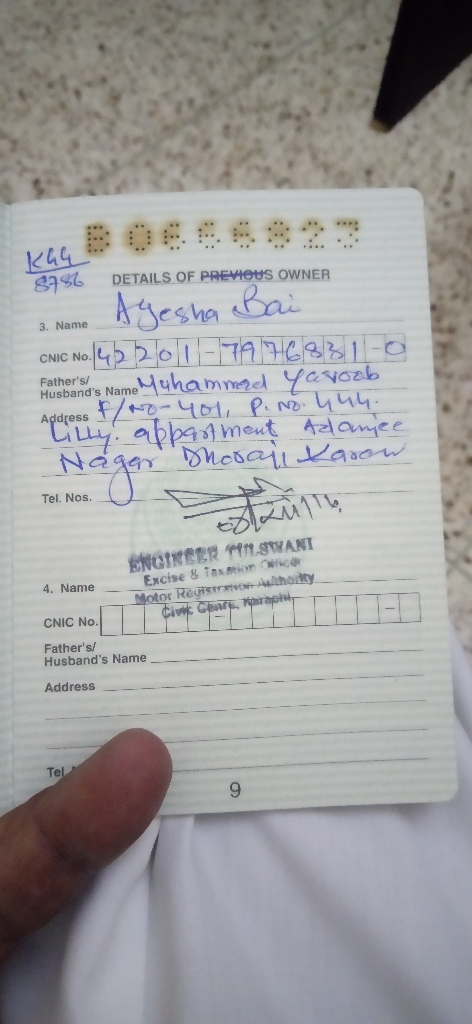 B0666823
KGG
8786
DETAILS OF PREVIOUS OWNER
3. Name Ayesha Bai
CNIC No. 42201-7976831-0
Father's/
Husband's Name Muhammad Yaqoob
Address F/No-401, P. No. 444.
Lilly. appartment Adamjee
Nagar Dhoraji Karachi
Tel. Nos.
ENGINEER TULSWANI
Excise & Taxation Officer
Motor Registration Authority
Civic Centre, Karachi
4. Name
CNIC No. - -
Father's/
Husband's Name
Address
Tel.
9